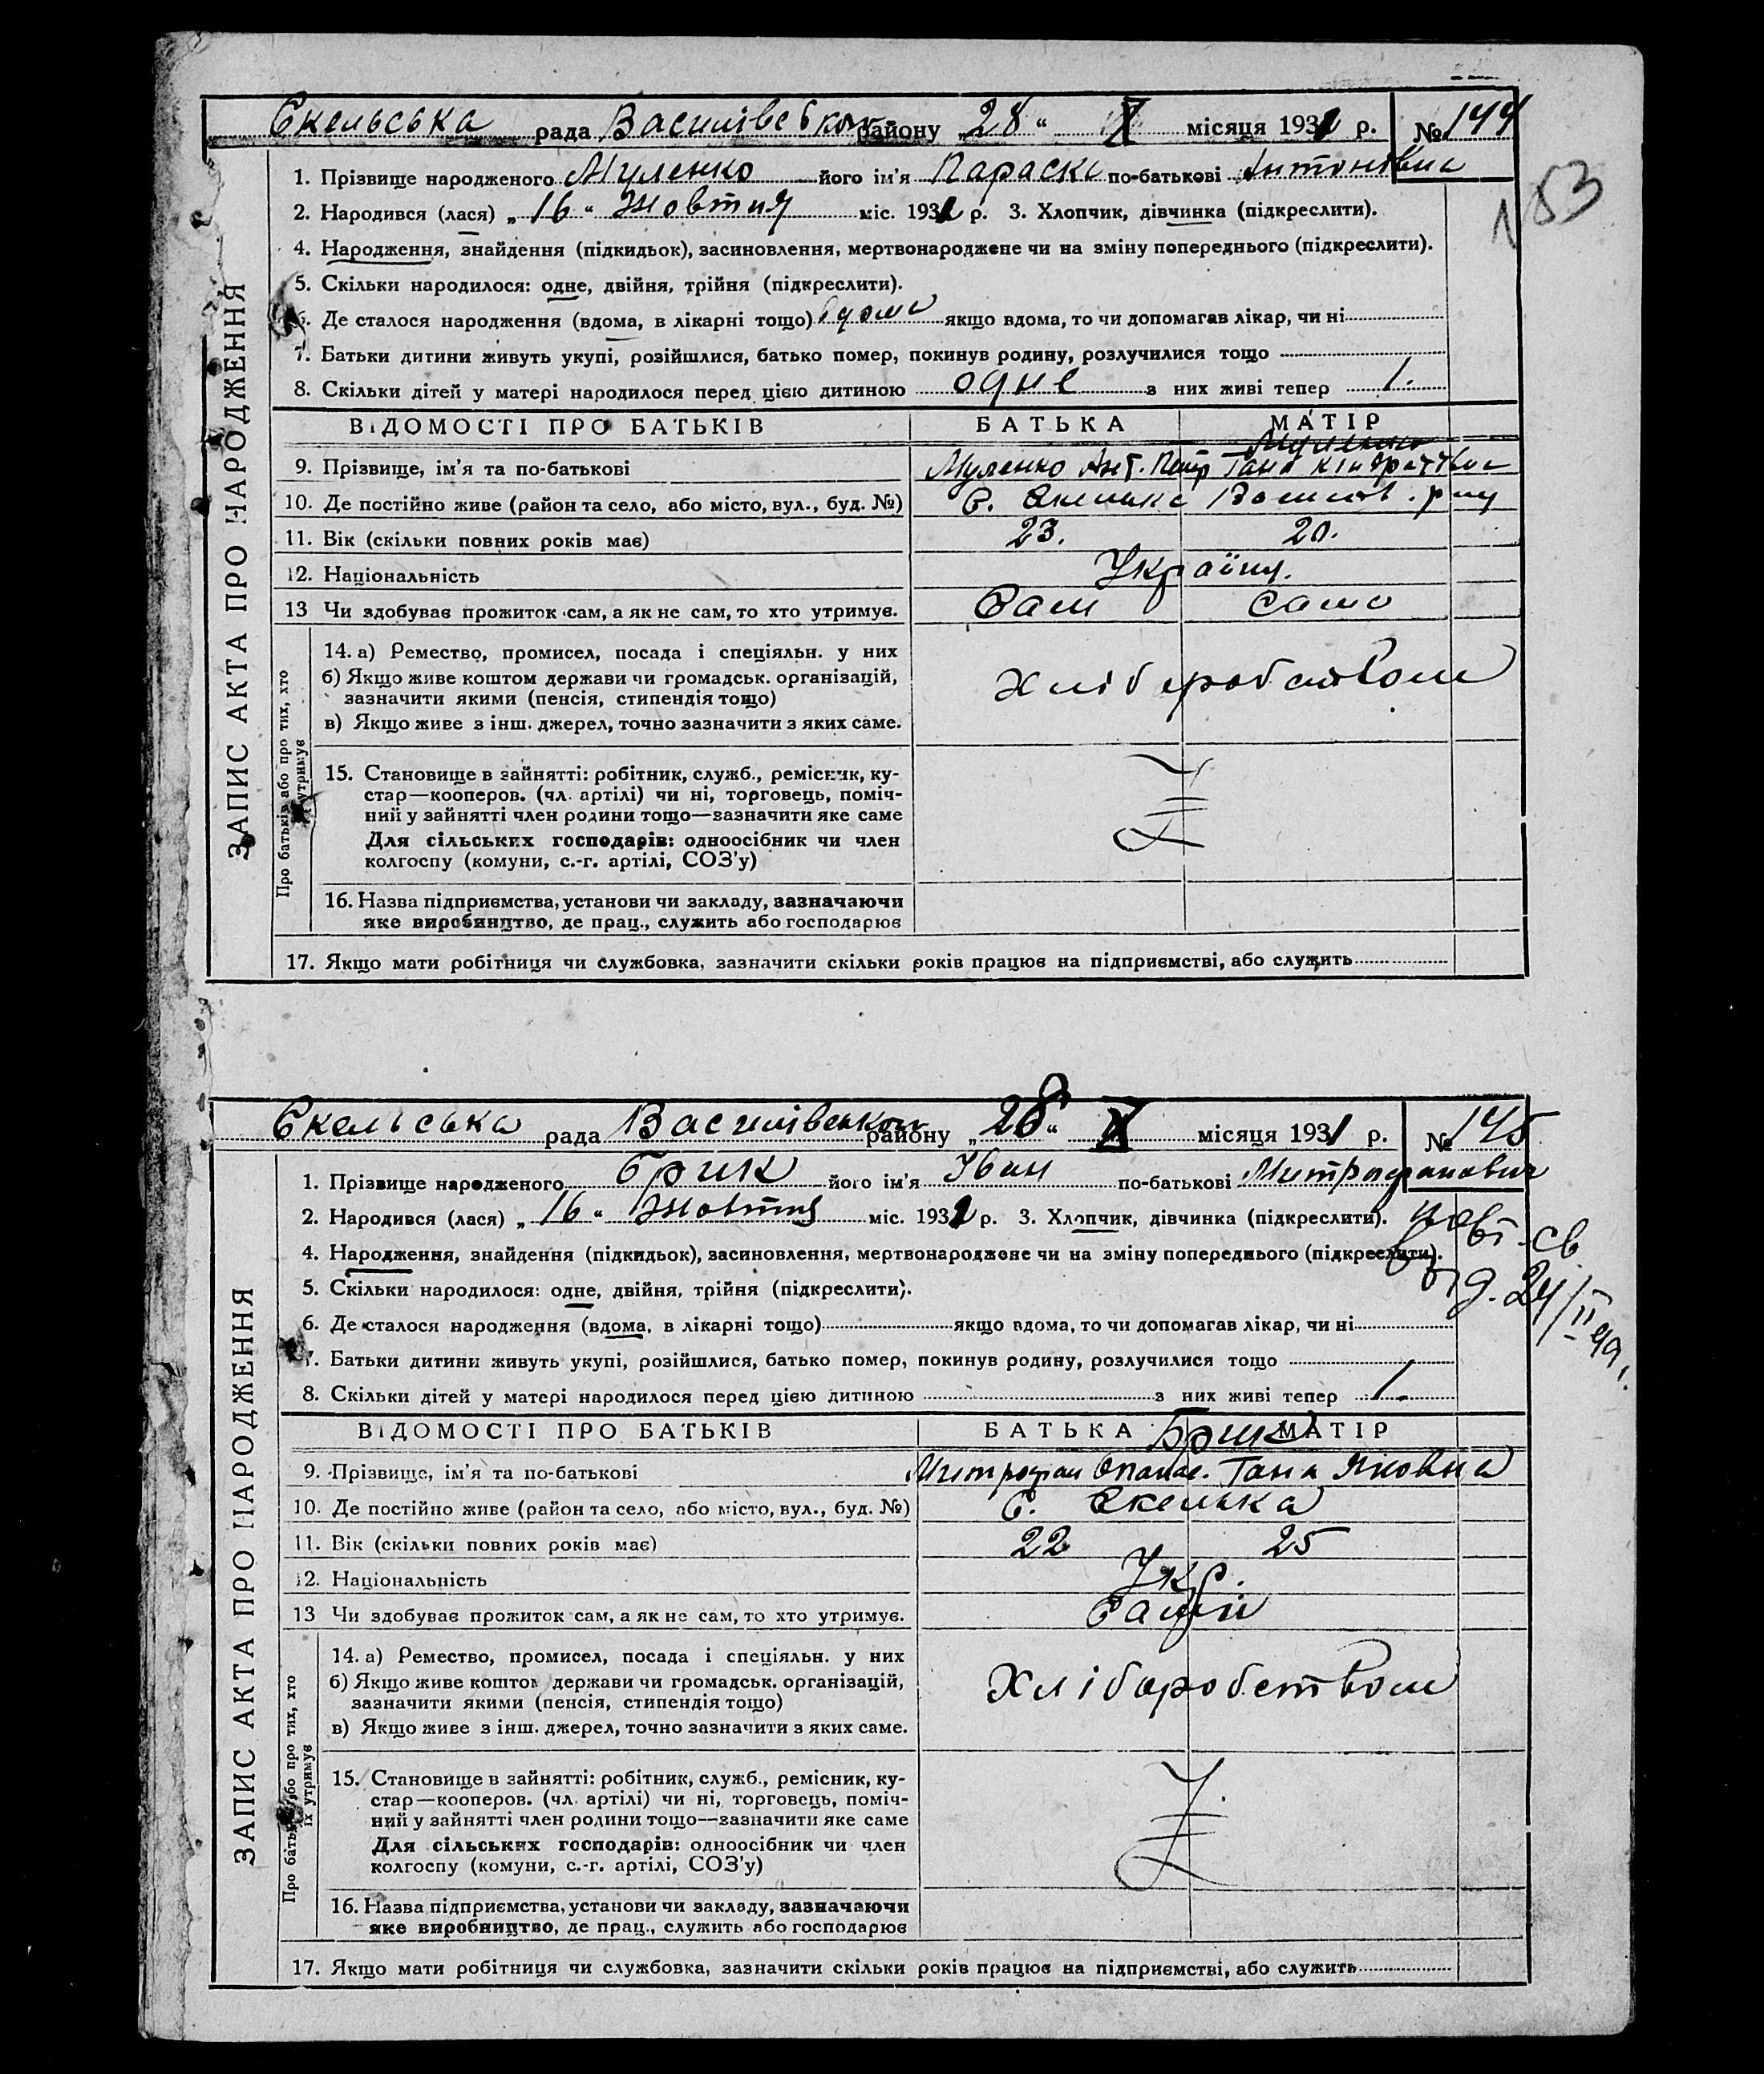 Скельська рада Василівського району „28“ X місяця 1931 р. № 144
153
1. Прізвище народженого Муленко його ім'я Параска по-батькові Антонівна
2. Народився (лася) „16“ Жовтня міс. 1931 р. 3. Хлопчик, дівчинка (підкреслити).
4. Народження, знайдення (підкидьок), засиновлення, мертвонароджене чи на зміну попереднього (підкреслити).
5. Скільки народилося: одне, двійня, трійня (підкреслити).
6. Де сталося народження (вдома, в лікарні тощо) вдома якщо вдома, то чи допомагав лікар, чи ні
7. Батьки дитини живуть укупі, розійшлися, батько помер, покинув родину, розлучилися тощо
8. Скільки дітей у матері народилося перед цією дитиною одне з них живі тепер 1.
ВІДОМОСТІ ПРО БАТЬКІВ БАТЬКА МАТІР
Муленко
9. Прізвище, ім'я та по-батькові Муленко Ант. Петр Ганя Кіндратівна
10. Де постійно живе (район та село, або місто, вул., буд. №) С. Скелька Василів. р-ну
11. Вік (скільки повних років має) 23. 20.
12. Національність Україн.
13 Чи здобував прожиток сам, а як не сам, то хто утримує. Сам сама
14. а) Ремество, промисел, посада і спеціяльн. у них
б) Якщо живе коштом держави чи громадськ. організацій,
зазначити якими (пенсія, стипендія тощо)
Хліборобством
в) Якщо живе з інш. джерел, точно зазначити з яких саме.
15. Становище в зайнятті: робітник, служб., ремісник, ку-
стар—кооперов. (чл. артілі) чи ні, торговець, поміч-
ний у зайнятті член родини тощо—зазначити яке саме
Для сільських господарів: одноосібник чи член
колгоспу (комуни, с.-г. артілі, СОЗ'у)
16. Назва підприємства, установи чи закладу, зазначаючи
яке виробництво, де прац., служить або господарює
17. Якщо мати робітниця чи службовка, зазначити скільки років працює на підприємстві, або служить
ЗАПИС АКТА ПРО НАРОДЖЕННЯ
Про батьків або про тих, хто
їх утримує
Скельська рада Василівського району „28“ X місяця 1931 р. № 145
1. Прізвище народженого Брик його ім'я Іван по-батькові Митрофанович
2. Народився (лася) „16“ Жовтня міс. 1931 р. 3. Хлопчик, дівчинка (підкреслити).
4. Народження, знайдення (підкидьок), засиновлення, мертвонароджене чи на зміну попереднього (підкреслити).
5. Скільки народилося: одне, двійня, трійня (підкреслити).
6. Де сталося народження (вдома, в лікарні тощо) якщо вдома, то чи допомагав лікар, чи ні
7. Батьки дитини живуть укупі, розійшлися, батько помер, покинув родину, розлучилися тощо
8. Скільки дітей у матері народилося перед цією дитиною з них живі тепер 1.
ВІДОМОСТІ ПРО БАТЬКІВ БАТЬКА МАТІР
Брик
9. Прізвище, ім'я та по-батькові Митрофан Опанас. Ганя Яковна
10. Де постійно живе (район та село, або місто, вул., буд. №) С. Скелька
11. Вік (скільки повних років має) 22 25
12. Національність Укр.
13 Чи здобував прожиток сам, а як не сам, то хто утримує. Самі
14. а) Ремество, промисел, посада і спеціяльн. у них
б) Якщо живе коштом держави чи громадськ. організацій,
зазначити якими (пенсія, стипендія тощо)
Хліборобством
в) Якщо живе з інш. джерел, точно зазначити з яких саме.
15. Становище в зайнятті: робітник, служб., ремісник, ку-
стар—кооперов. (чл. артілі) чи ні, торговець, поміч-
ний у зайнятті член родини тощо—зазначити яке саме
Для сільських господарів: одноосібник чи член
колгоспу (комуни, с.-г. артілі, СОЗ'у)
16. Назва підприємства, установи чи закладу, зазначаючи
яке виробництво, де прац., служить або господарює
17. Якщо мати робітниця чи службовка, зазначити скільки років працює на підприємстві, або служить
ЗАПИС АКТА ПРО НАРОДЖЕННЯ
Про батьків або про тих, хто
їх утримує